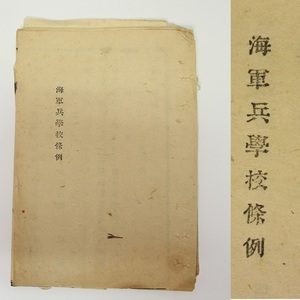 海軍兵學校條例
海軍兵學校條例